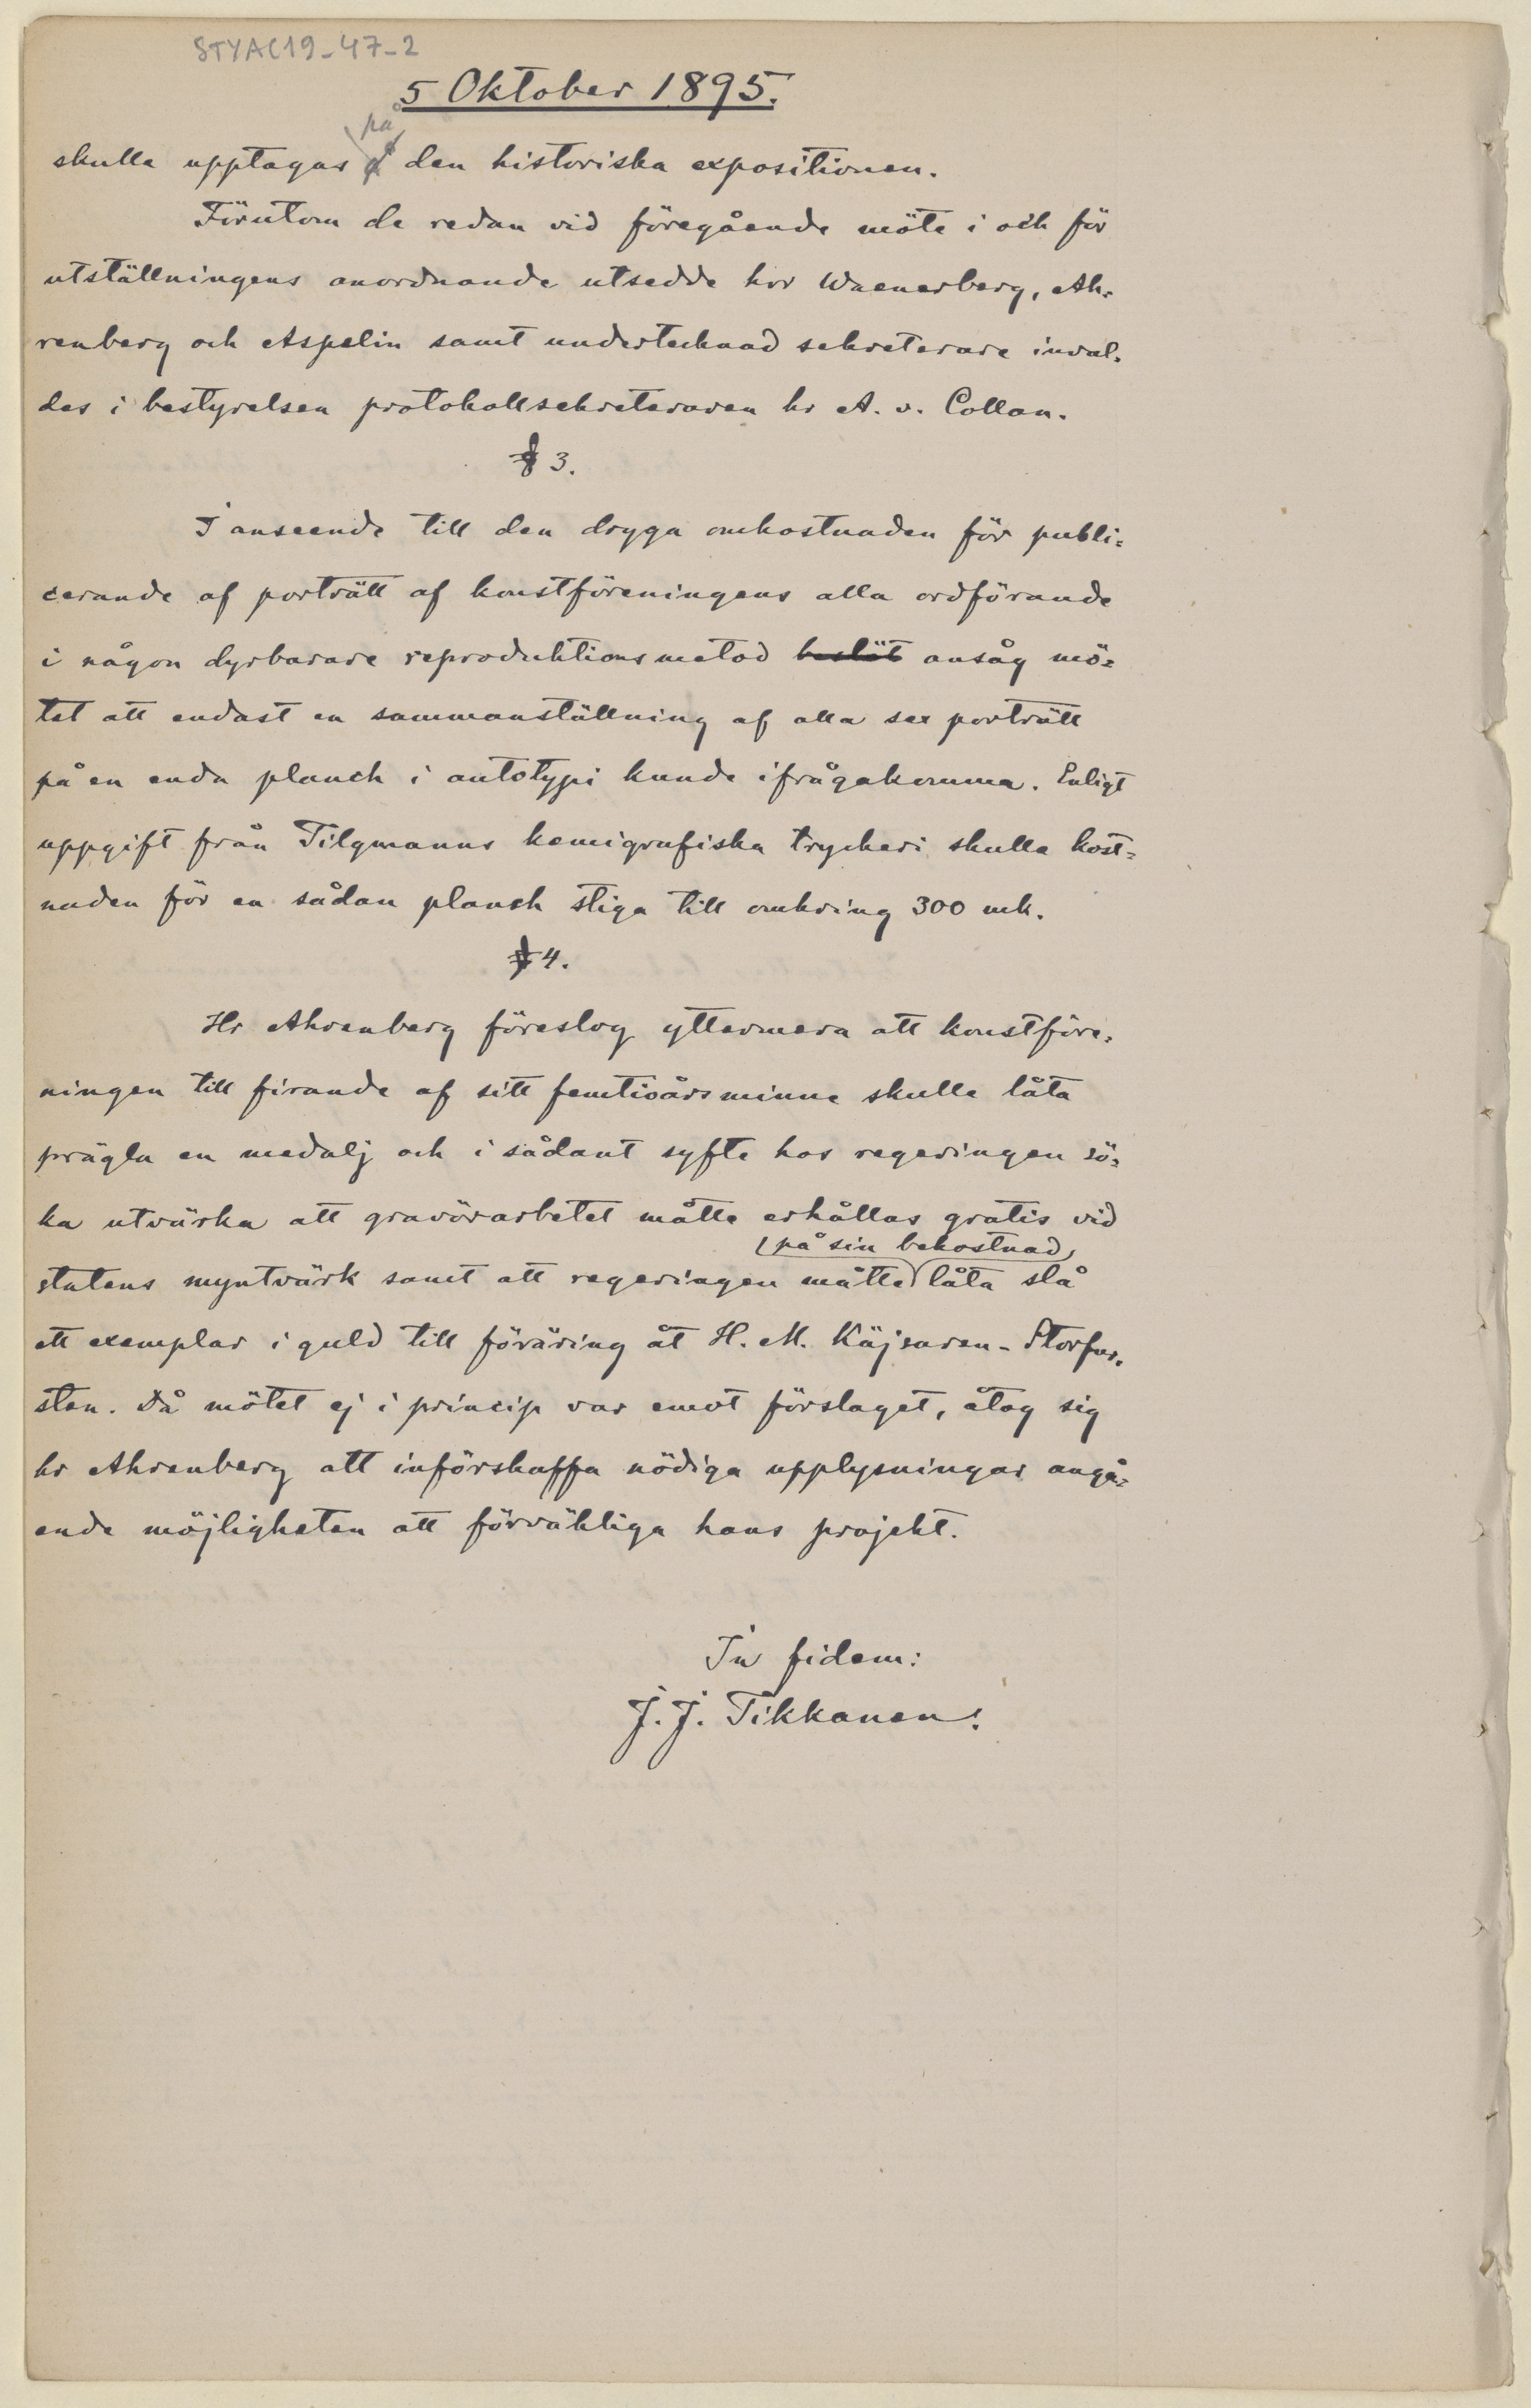 STYAC19-47-2
5 Oktober 1895.
på
skulla upptagas å den historiska expositionen.
Förutom de redan vid föregående möte i och för
utställningens anordnande utsedde hrr Waenerberg, Ah-
renberg och Aspelin samt undertecknad sekreterare inval-
des i bestyrelsen protokollsekreteraren hr A. v. Collan.
§ 3.
I anseende till den dryga omkostnaden för publi-
cerande af porträtt af konstföreningens alla ordförande
i någon dyrbarare reproduktionsmetod beslöt ansåg mö-
tet att endast en sammanställning af alla sex porträtt
på en enda planch i autotypi kunde ifrågakomma. Enligt
uppgift från Tilgmanns kemigrafiska tryckeri skulle kost-
naden för en sådan planch stiga till omkring 300 mk.
§ 4.
Hr Ahrenberg föreslog yttermera att konstföre-
ningen till firande af sitt femtioårsminne skulle låta
prägla en medalj och i sådant syfte hos regeringen sö-
ka utvärka att gravörarbetet måtte erhållas gratis vid
på sin bekostnad
statens myntvärk samt att regeringen måtte låta slå
ett exemplar i guld till föräring åt H. M. Käjsaren-Storfur-
sten. Då mötet ej i princip var emot förslaget, åtog sig
hr Ahrenberg att införskaffa nödiga upplysningar angå-
ende möjligheten att förvärkliga hans projekt.
In fidem:
J. J. Tikkanen.